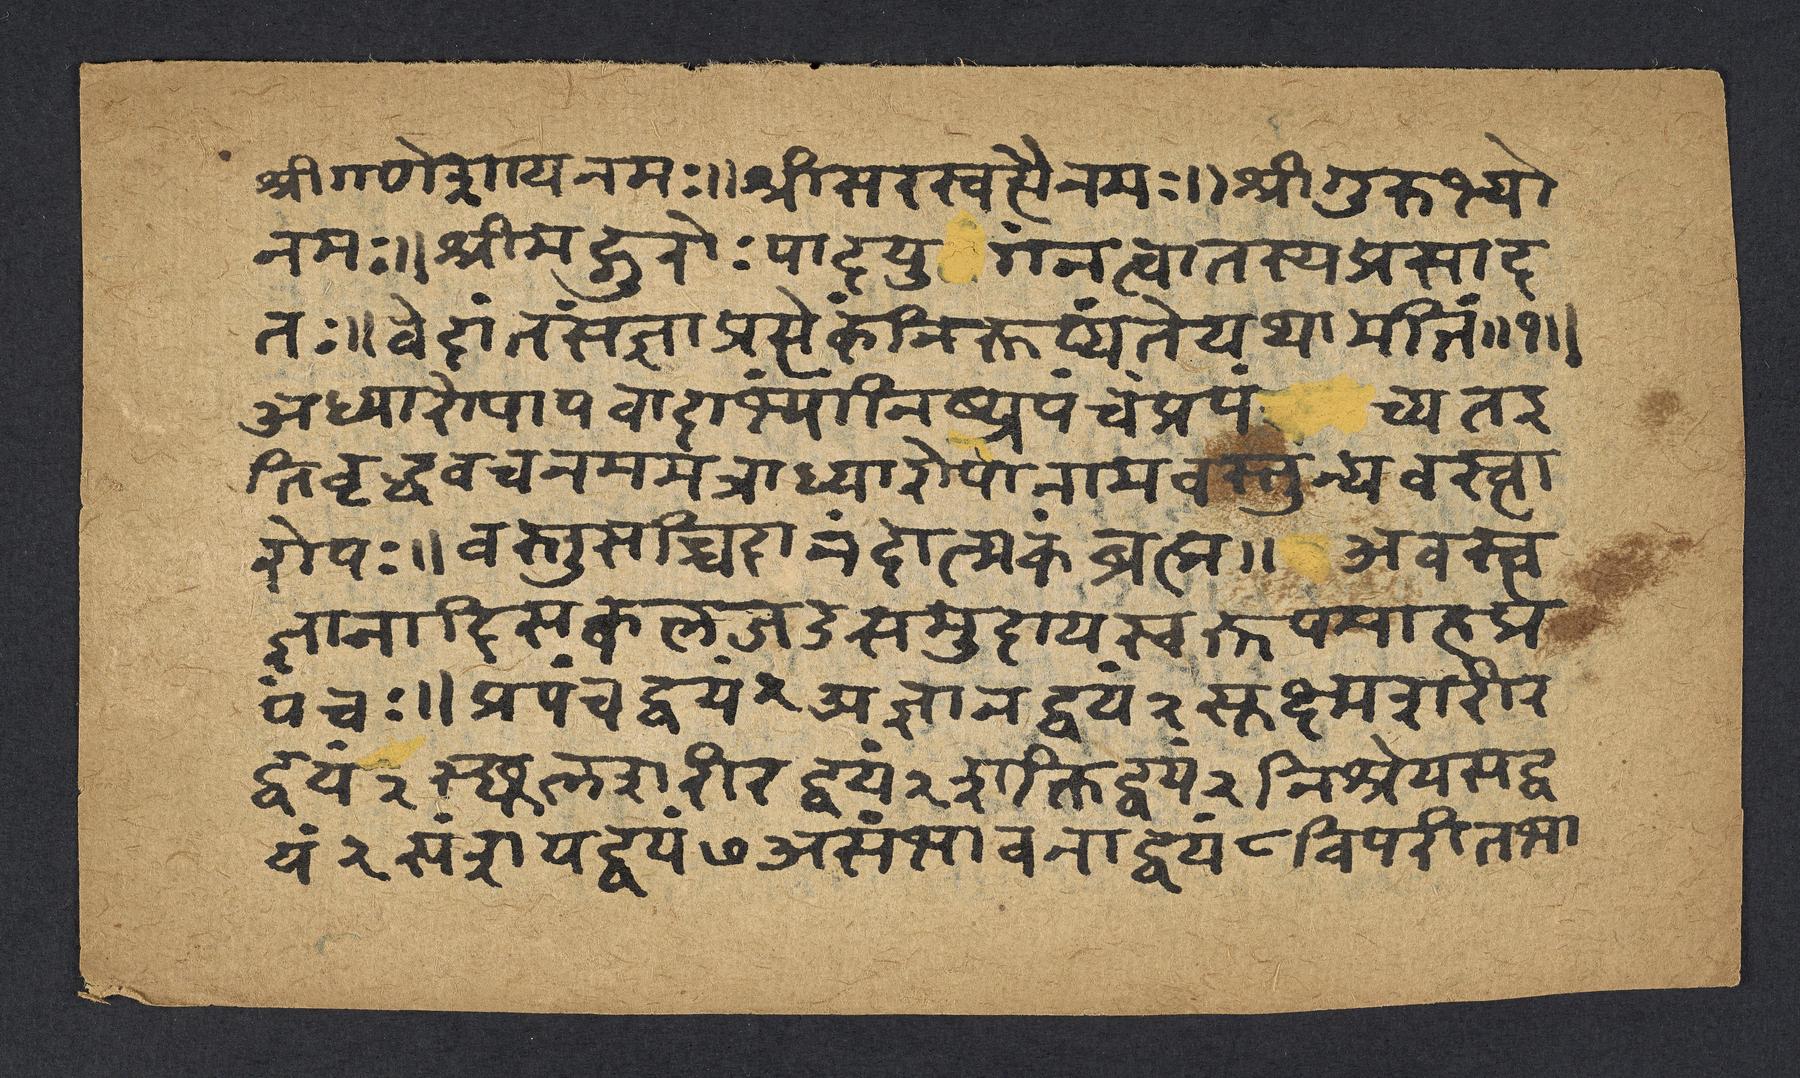 श्रीगणेशायनमः॥श्रीसरस्वत्यैनमः॥श्रीगुरुभ्यो
नमः॥श्रीमद्गुरोःपादयुगंनत्वातस्यप्रसाद
तः॥वेदांतसंज्ञाप्रत्येकंनिरूप्यंतेयथामतिं॥१॥
अध्यारोपापवादाभ्यांनिष्प्रपंचंप्रपंच्यतइ
तिवृद्धवचनमममत्राध्यारोपोनामवस्तुन्यवस्त्वा
रोपः॥वस्तुसच्चिदानंदात्मकंब्रह्म॥अवस्त्व
ज्ञानादिसकलजडसमुदायस्वरूपमाहप्र
पंचः॥प्रपंचद्वयं२अज्ञानद्वयं२सूक्ष्मशरीर
द्वयं२स्थूलशरीरद्वयं२शक्तिद्वयं२निश्रेयसद्व
यं२संशयद्वयं७असंभावनाद्वयं८विपरीतभा